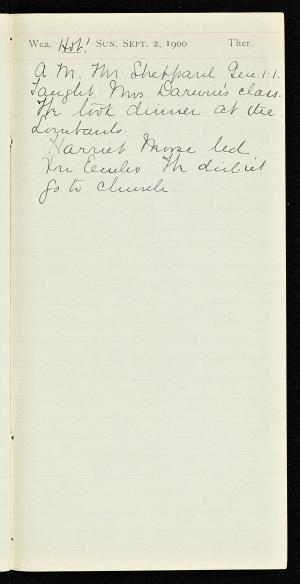 Wea. Hot! SUN. SEPT. 2, 1900 Ther.
A.M. Mr. Sheppard Gen. 1:1.
Taught Mrs. Darwin's class.
We took dinner at the
Lombards.
Harriet Morse led
We didn't
go to church.